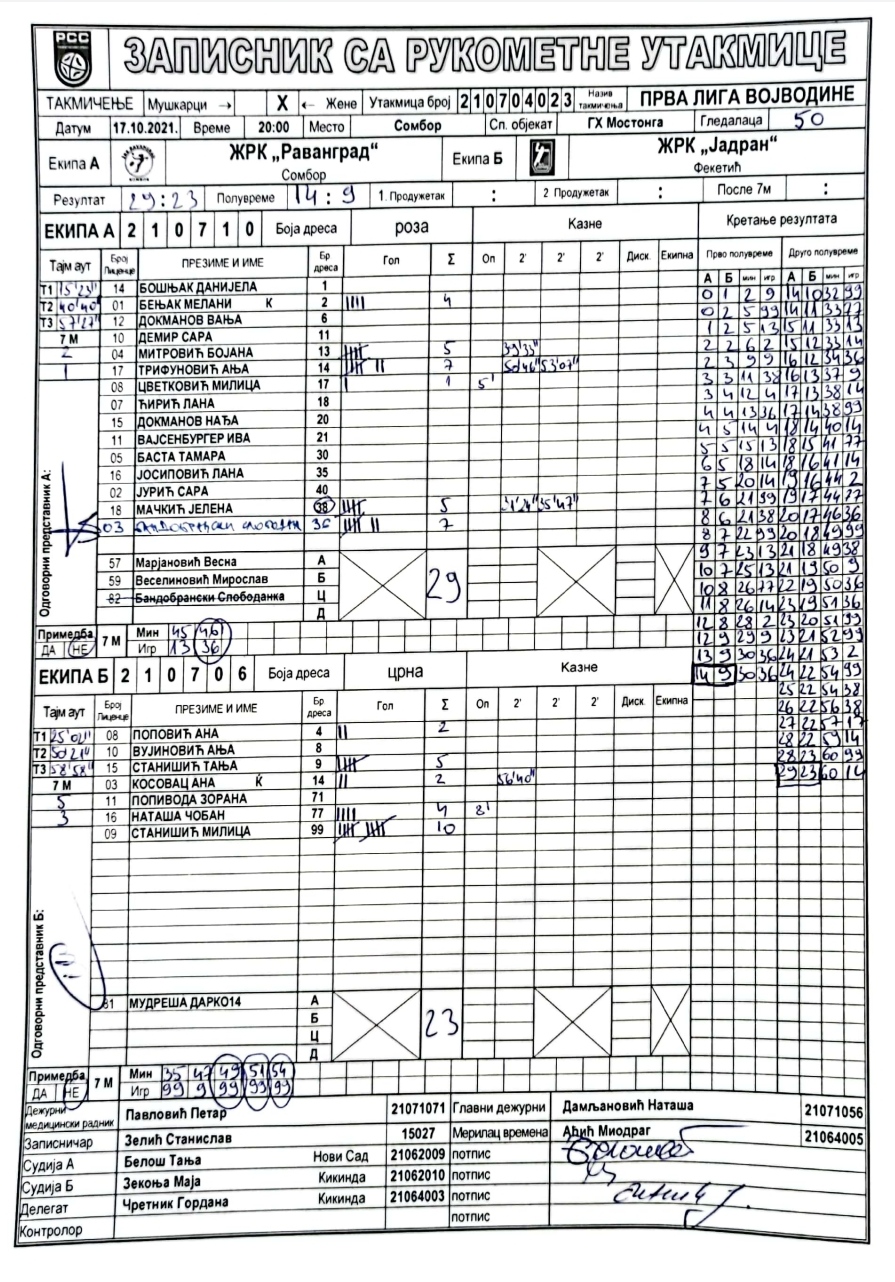 РСС
ЗАПИСНИК СА РУКОМЕТНЕ УТАКМИЦЕ
ТАКМИЧЕЊЕ Мушкарци → X ← Жене Утакмица број 210704023 Назив такмичења ПРВА ЛИГА ВОЈВОДИНЕ
Датум 17.10.2021. Време 20:00 Место Сомбор Сп. објекат ГХ Мостонга Гледалаца 50
Екипа А ЖРК „Раванград“ Сомбор Екипа Б ЖРК „Јадран“ Фекетић
Резултат 29:23 Полувреме 14:9 1. Продужетак : 2 Продужетак : После 7м :
ЕКИПА А 210710 Боја дреса роза Казне Кретање резултата
Тајм аут Број Лиценце ПРЕЗИМЕ И ИМЕ Бр дреса Гол Σ Оп 2' 2' 2' Диск. Екипна Прво полувреме Друго полувреме
А Б мин игр А Б мин игр
T1 15'23" 14 БОШЊАК ДАНИЈЕЛА 1 0 1 2 9 14 10 32 99
T2 40'40" 01 БЕЊАК МЕЛАНИ К 2 IIII 4 0 2 5 99 14 11 33 77
T3 57'27" 12 ДОКМАНОВ ВАЊА 6 1 2 5 13 15 11 33 13
7 М 10 ДЕМИР САРА 11 2 2 6 2 15 12 33 14
2 04 МИТРОВИЋ БОЈАНА 13 5 39'33" 2 3 9 99 16 12 34 36
1 17 ТРИФУНОВИЋ АЊА 14 7 50'46" 53'07" 3 3 11 38 16 13 37 9
08 ЦВЕТКОВИЋ МИЛИЦА 17 I 1 5' 3 4 12 4 17 13 38 14
07 ЋИРИЋ ЛАНА 18 4 4 13 36 17 14 38 99
15 ДОКМАНОВ НАЂА 20 4 5 14 4 18 14 40 14
11 ВАЈСЕНБУРГЕР ИВА 21 5 5 15 13 18 15 41 77
05 БАСТА ТАМАРА 30 6 5 18 14 18 16 41 14
16 ЈОСИПОВИЋ ЛАНА 35 7 5 20 14 19 16 44 2
02 ЈУРИЋ САРА 40 7 6 21 99 19 17 44 77
18 МАЧКИЋ ЈЕЛЕНА 38 5 35'47" 8 6 21 38 20 17 46 36
03 36 7 8 7 22 99 20 18 49 99
9 7 23 13 21 18 49 38
57 Марјановић Весна А 10 7 25 13 21 19 50 9
59 Веселиновић Мирослав Б 29 10 8 26 17 22 19 50 36
82 Бандобрански Слободанка Ц 11 8 26 14 23 19 51 36
Д 12 8 28 2 23 20 51 99
Одговорни представник А:
Примедба ДА НЕ 7 М Мин 45 46 12 9 29 9 23 21 52 99
Игр 13 36 13 9 30 36 24 21 53 2
ЕКИПА Б 210706 Боја дреса црна Казне 14 9 30 36 24 22 54 99
25 22 54 38
Тајм аут Број Лиценце ПРЕЗИМЕ И ИМЕ Бр дреса Гол Σ Оп 2' 2' 2' Диск. Екипна 26 22 56 38
T1 25'02" 08 ПОПОВИЋ АНА 4 II 2 27 22 57 17
T2 50'21" 10 ВУЈИНОВИЋ АЊА 8 28 22 59 14
T3 58'58" 15 СТАНИШИЋ ТАЊА 9 5 28 23 60 99
7 М 03 КОСОВАЦ АНА Ќ 14 II 2 56'40" 29 23 60 14
5 11 ПОПИВОДА ЗОРАНА 71
3 16 НАТАША ЧОБАН 77 IIII 4 8'
09 СТАНИШИЋ МИЛИЦА 99 10
Одговорни представник Б:
81 МУДРЕША ДАРКО14 А
Б 23
Ц
Д
Примедба ДА НЕ 7 М Мин 35 47 49 51 54
Игр 99 9 99 99 99
Дежурни медицински радник Павловић Петар 21071071 Главни дежурни Дамљановић Наташа 21071056
Записничар Зелић Станислав 15027 Мерилац времена Аћић Миодраг 21064005
Судија А Белош Тања Нови Сад 21062009 потпис
Судија Б Зекоња Маја Кикинда 21062010 потпис
Делегат Чретник Гордана Кикинда 21064003 потпис
Контролор потпис